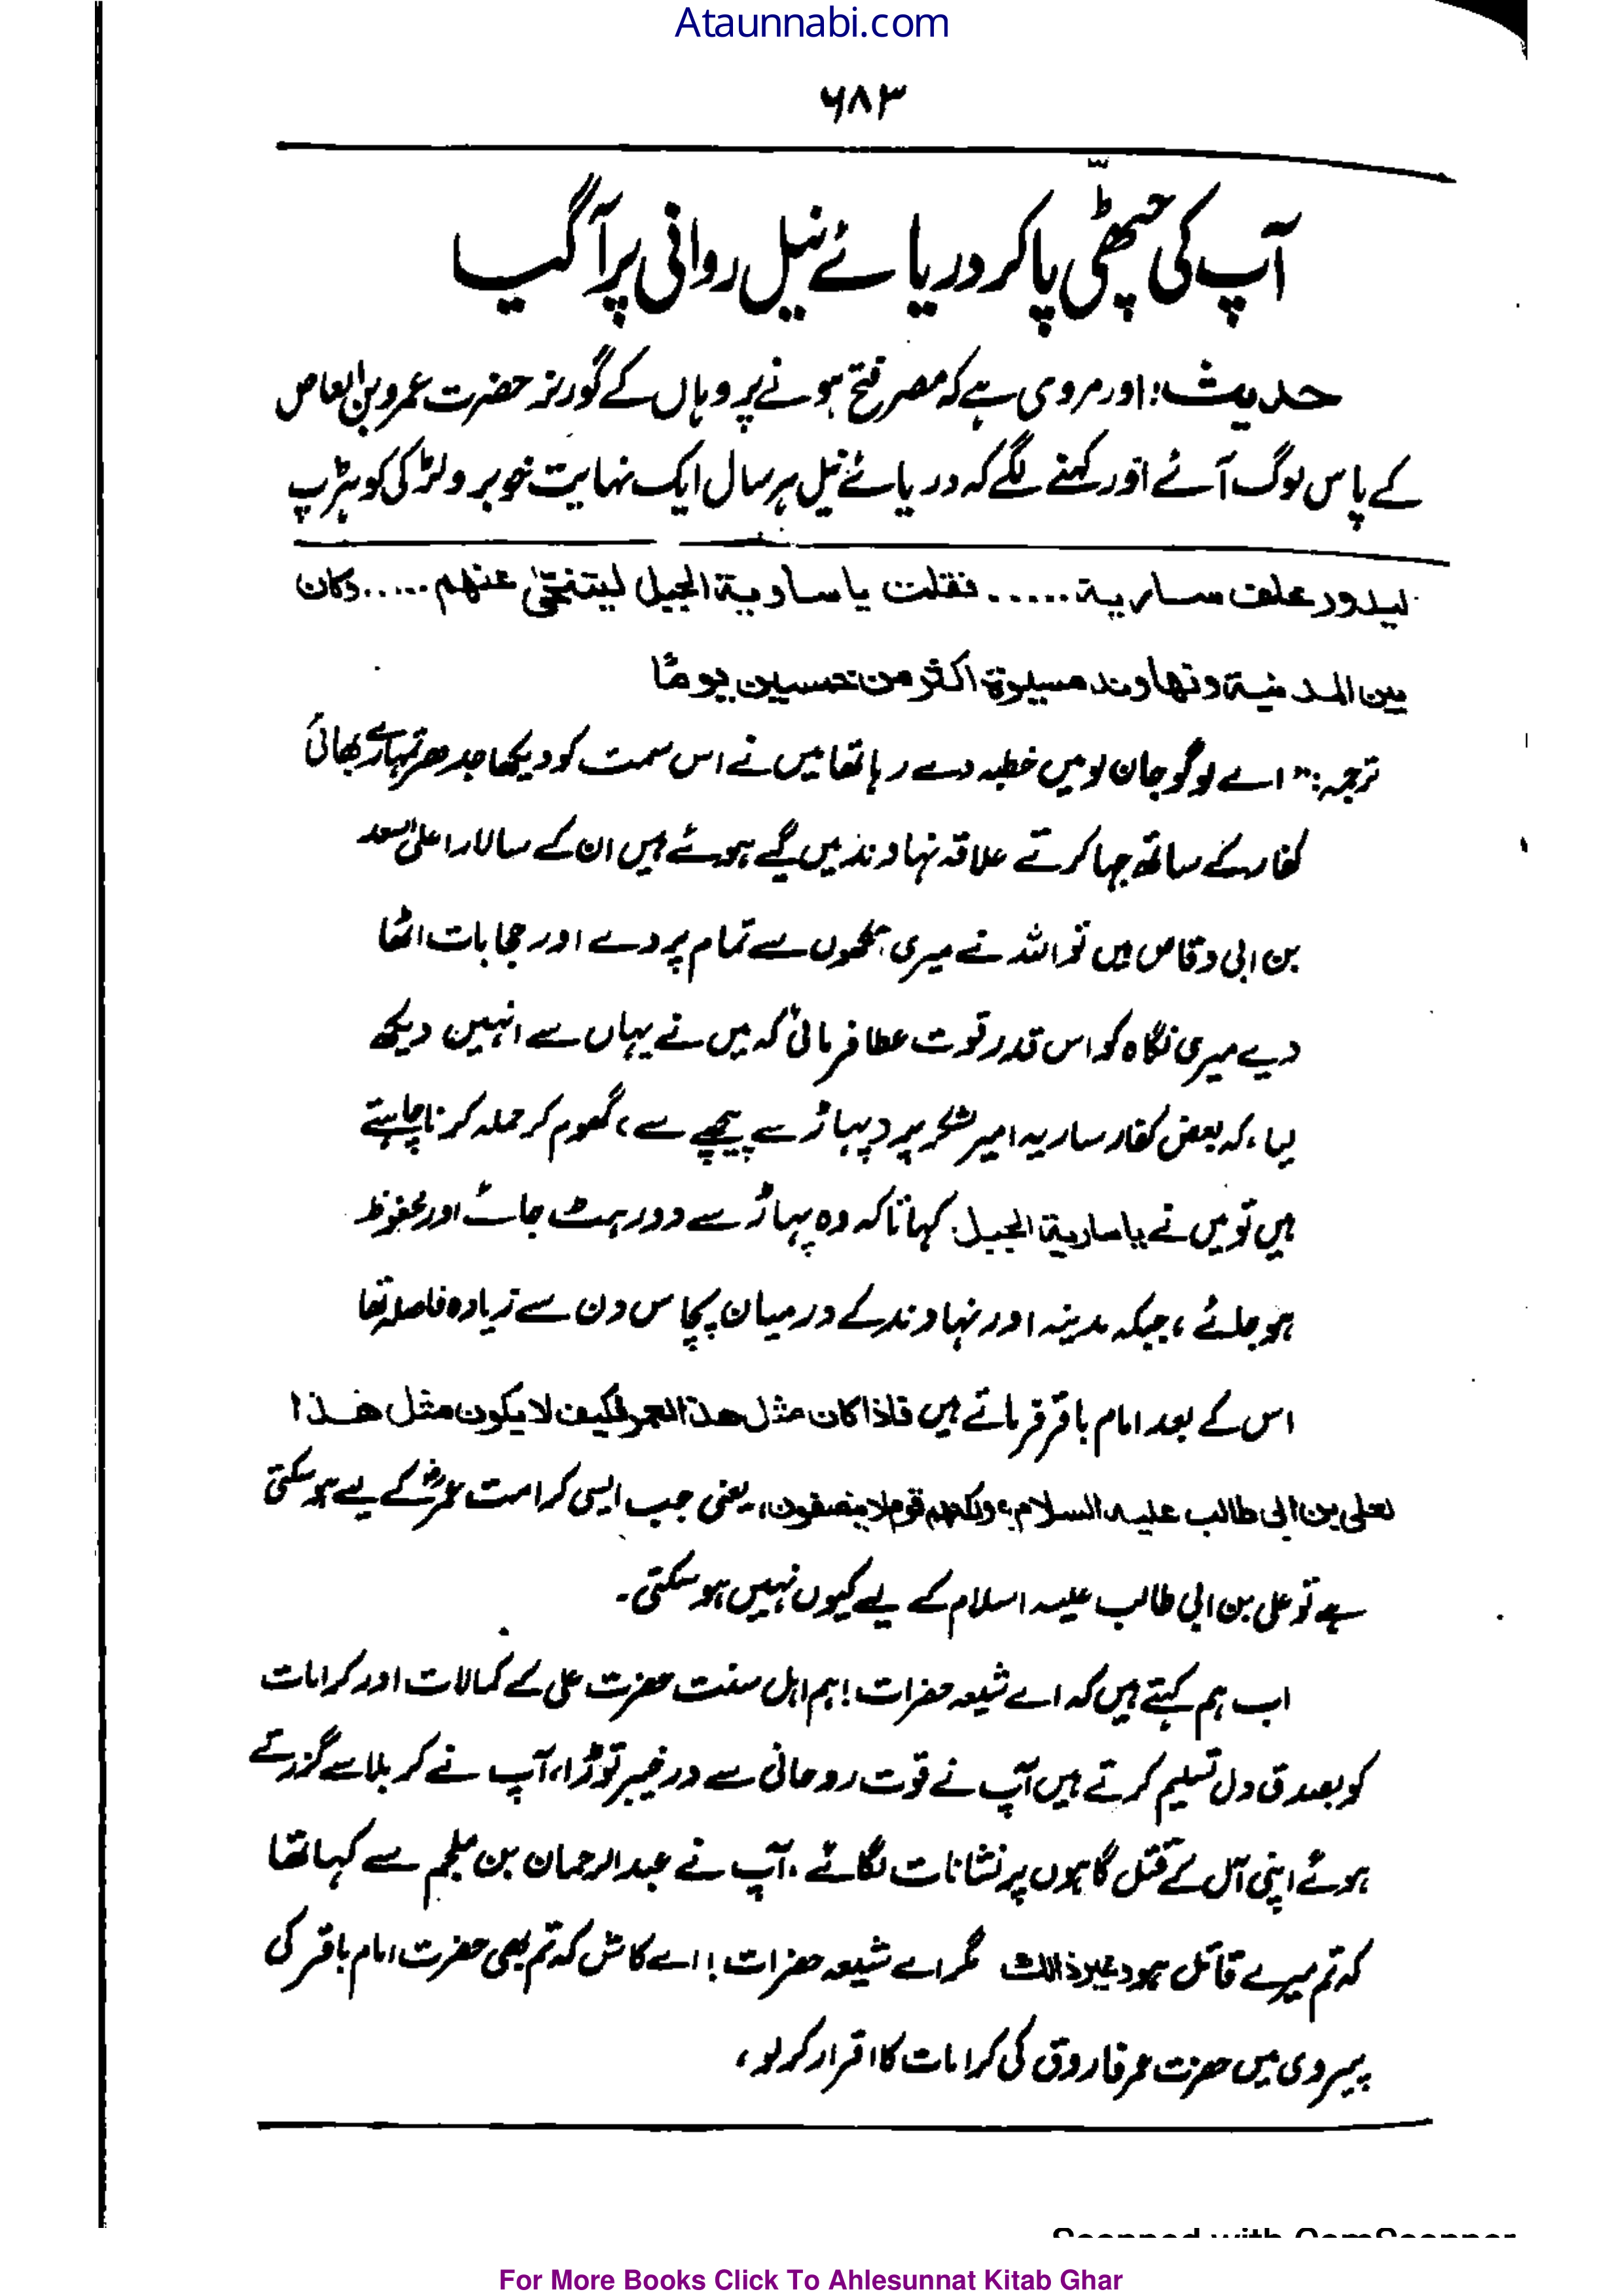 Ataunnabi.com
۶۸۳
آپ کی چٹھی پا کر دریائے نیل روانی پر آ گیا
حدیث: اور مروی ہے کہ مصر فتح ہونے پر وہاں کے گورنر حضرت عمرو بن العاص
کے پاس لوگ آئے اور کہنے لگے کہ دریائے نیل ہر سال ایک نہایت خوبرو لڑکی کو ہڑپ
ليدور علف سارية ..... فقلت يا سارية الجبل ليتنحى عنهم ..... وكان
بين المدينة ونهاوند مسيرة اكثر من خمسين يومًا
ترجمہ: ”اے لوگو جان لو میں خطبہ دے رہا تھا میں نے اس سمت کو دیکھا جدھر تمہارے بھائی
کفار کے ساتھ جہا کرتے علاقہ نہاوند میں گیے ہوئے ہیں ان کے سالار اعلیٰ سعد
بن ابی وقاص ہیں تو اللہ نے میری آنکھوں سے تمام پردے اور حجابات اٹھا
دیے میری نگاہ کو اس قدر قوت عطا فرمائی کہ میں نے یہاں سے انہیں دیکھ
لیا، کہ بعض کفار ساریہ امیر لشکر پر دپہاڑ سے پیچھے سے، گھوم کر حملہ کرنا چاہتے
ہیں تو میں نے یا ساریۃ الجبل کہا تاکہ وہ پہاڑ سے دور ہٹ جائے اور محفوظ
ہو جائے، جبکہ مدینہ اور نہاوند کے درمیان پچاس دن سے زیادہ فاصلہ تھا
اس کے بعد امام باقر فرماتے ہیں فاذا كان مثل هذا لعمر فكيف لا يكون مثل هذا
لعلی بن ابی طالب علیہ السلام؟ ولكنهم قوم لا ينصفون،۔ یعنی جب ایسی کرامت عمرؓ کے لیے ہو سکتی
ہے تو علی بن ابی طالب علیہ اسلام کے لیے کیوں نہیں ہو سکتی۔
اب ہم کہتے ہیں کہ اے شیعہ حضرات! ہم اہل سنت حضرت علی کے کمالات اور کرامات
کو بصدق دل تسلیم کرتے ہیں آپ نے قوت روحانی سے در خیبر توڑا، آپ نے کربلا سے گزرتے
ہوئے اپنی آل کے قتل گاہوں پر نشانات لگائے۔ آپ نے عبدالرحمان بن ملجم سے کہا تھا
کہ تم میرے قاتل ہو وغیر ذالک مگر اے شیعہ حضرات! اے کاش کہ تم بھی حضرت امام باقر کی
پیروی میں حضرت عمر فاروق کی کرامات کا اقرار کر لو،
Scanned with CamScanner
For More Books Click To Ahlesunnat Kitab Ghar